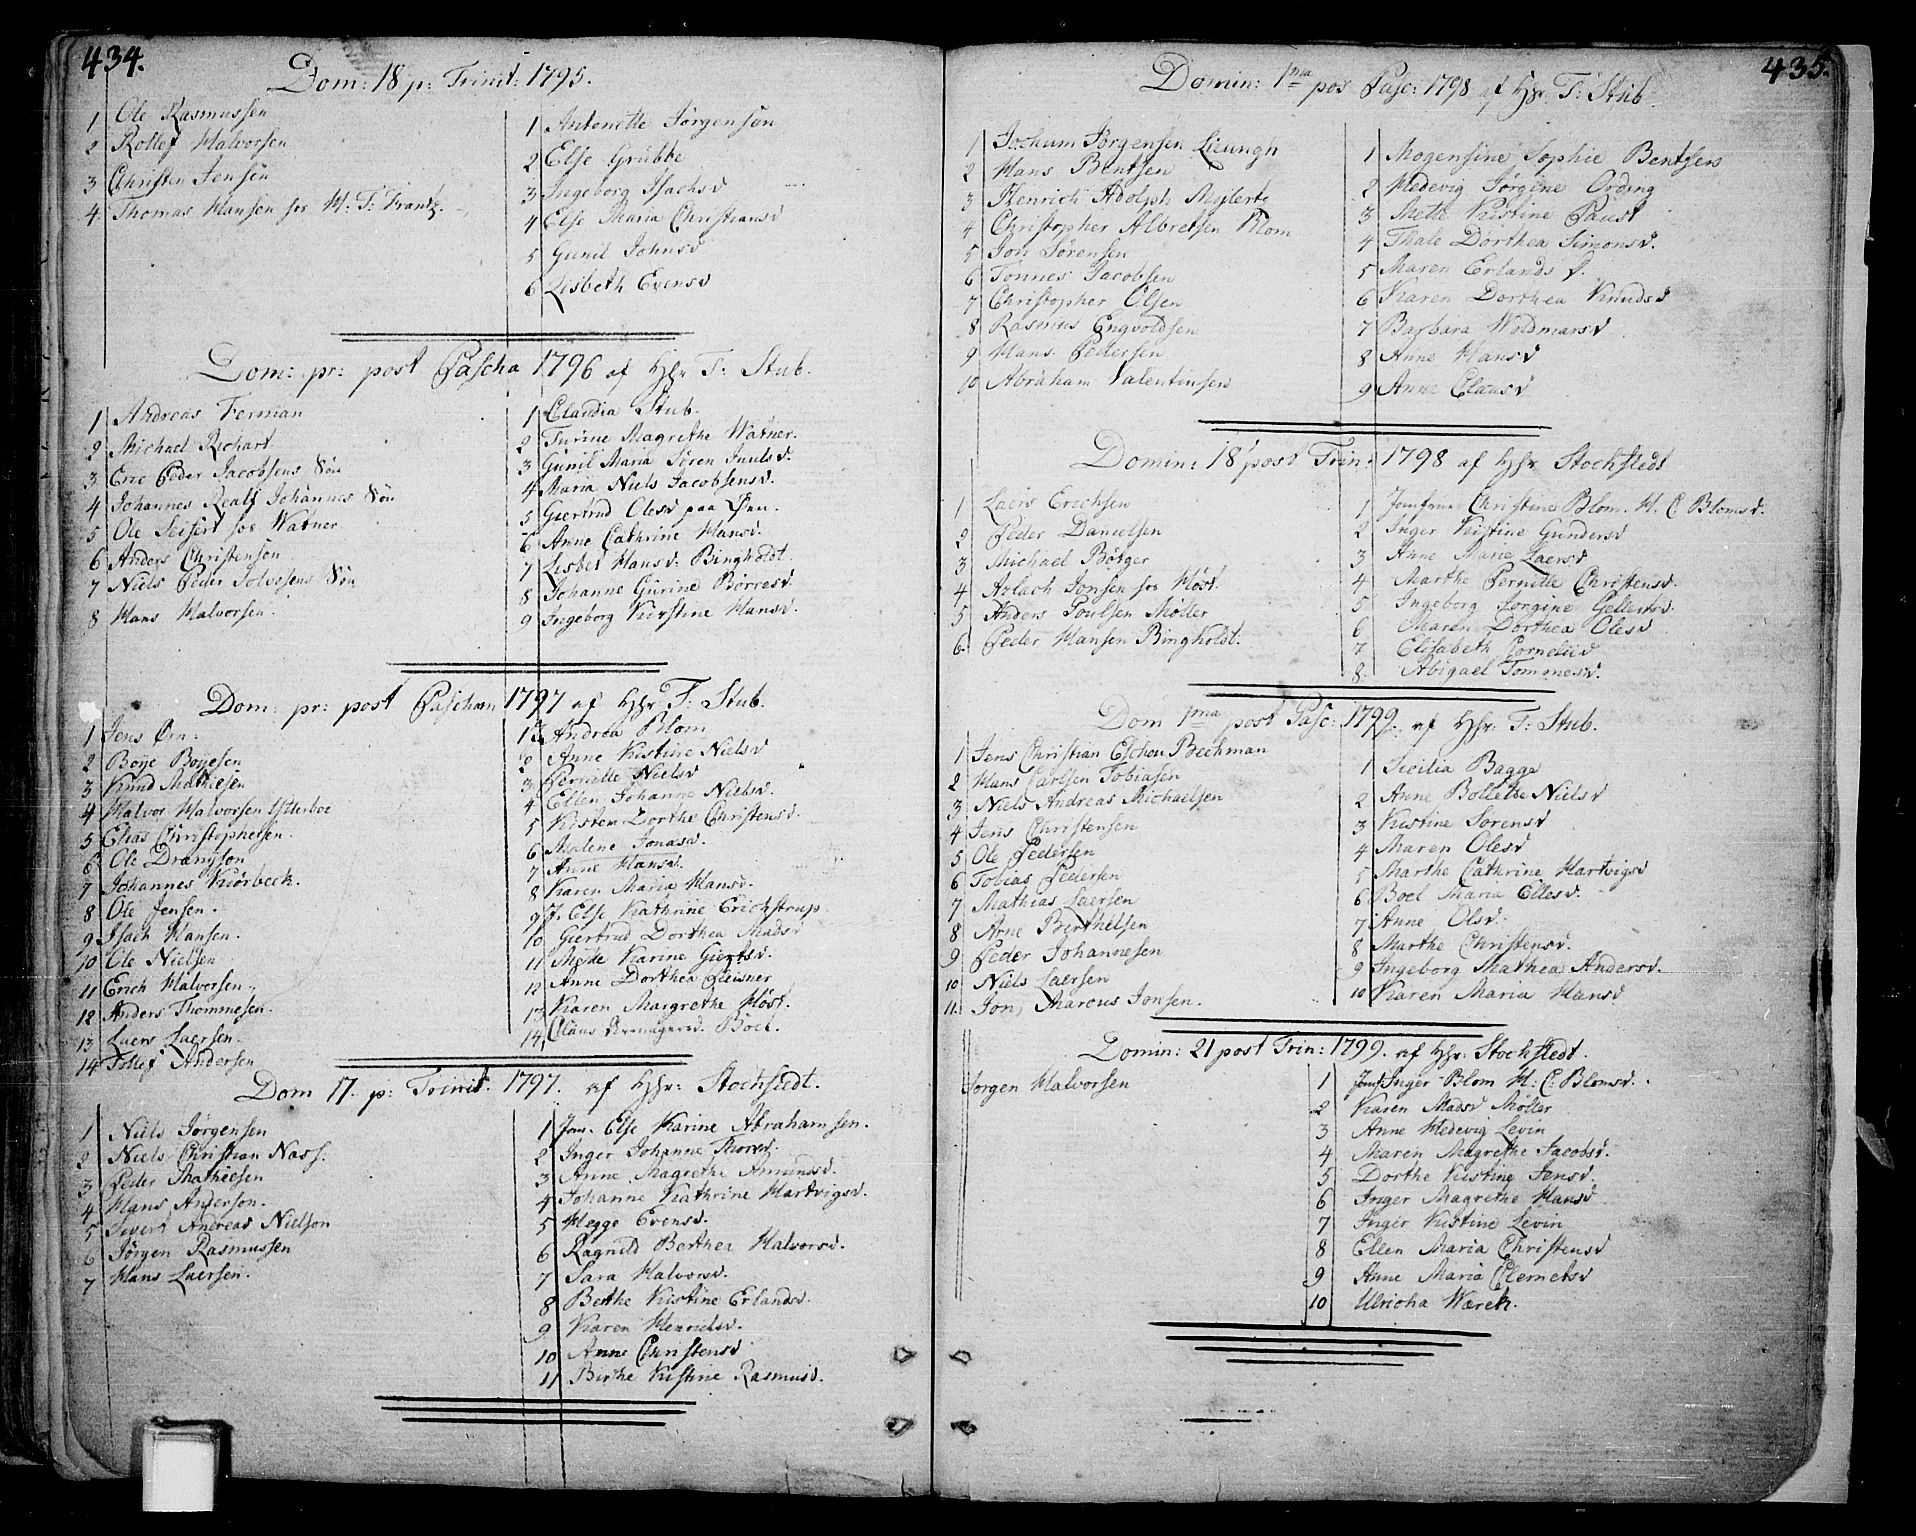 434.
Dom: 18 p: Trinit: 1795.
1 Ole Rasmussen
2 Rollef Halvorsen
3 Christen Jensön
4. Thomas Hansen hos H. T: Frantz.
1 Antonette Jörgensön
2 Else Grubbe
3 Ingeborg Isachsd
4 Else Maria Christiansd
5 Gunil Johnsd
6 Lisbeth Evensd
Dom: pr: post Pascha 1796 af Hhr T: Stub.
1 Andreas Ferman
2 Michael Richart
3 Eric Peder Jacobsens Sön
4 Johannes Realf Johannes Sön
5 Ole Seifert hos Watner
6 Anders Christensön
7 Niels Peder Tolvefsens Sön
8 Hans Halvorsen
1 Claudia Stub.
2 Turine Magrethe Watner.
3 Gunil Maria Sören Juulsd.
4 Maria Niels Jacobsensd.
5 Giertrud Olesd paa Öen.
6 Anne Cathrine Hansd.
7 Lisbet Hansd: Bingholdt.
8 Johanne Gurine Börresd.
9 Ingeborg Kirstine Hansd.
Dom: pr: post Pascham 1797 af Hhr T: Stub.
1 Jens Örn:
2 Boÿe Boÿesen
3 Knud Mathiesen
4 Halvor Halvorsen Ytterboe
5 Elias Christophersen.
6 Ole Drangson
7 Johannes Kiörbeck.
8 Ole Jensen.
9 Isach Hansen.
10 Ole Nielsen
11 Erich Halvorsen.
12 Anders Thommesen.
13 Laers Laersen.
14 Tollef Andersen
1 Andrea Blom
2 Anne Kistine Nielsd
3 Pernille Nielsd
4 Ellen Johanne Nielsd.
5 Kisten Dorthe Christensd.
6 Malene Jonasd.
7 Anne Hansd.
8 Karen Maria Hansd.
9 J. Else Kathrine Erichstrup
10 Giertrud Dorthea Madsd
11 Mette Karine Giertsd.
12 Anne Dorthea Pleisner
13 Karen Margrethe Höst.
14. Boel.
Dom 17. p: Trinit. 1797. af Hhr: Stochstedt.
1 Niels Jörgensen
2 Niels Christian Nass.
3 Peder Mathiesen
4 Hans Anderson.
5 Sivert Andreas Nielson
6 Jörgen Rasmussen
7 Hans Laersen.
1 Jom. Else Karine Abrahamsen.
2 Inger Johanne Thorsd.
3 Anne Magrethe Amundsd.
4 Johanne Kathrine Hartvigsd.
5 Hegge Evensd.
6 Ragnild Berthea Halvorsd.
7 Sara Halvorsd.
8 Berthe Kistine Erlandsd.
9 Karen Henrichsd.
10 Anne Christensd
11 Birthe Kistine Rasmusd.
435.
Domin: 1ma pos Pasc: 1798 af Hhr T: Stub
1 Jochum Jörgensen Lieungh
2 Hans Bentsen
3 Henrich Adolph Mÿlerte
4 Christopher Albretsen Blom
5 Jon Sörensen
6 Tönnes Jacobsen
7 Christopher Olsen
8 Rasmus Engvoldsen
9 Hans Pedersen
10 Abraham Valentinsen
1 Mogensine Sophie Bentsens
2 Hedevig Jörgine Ording
3 Mette Kistine Paust
4 Thale Dorthea Simonsd.
5 Maren Erlands d.
6 Karen Dorthea Knudsd
7 Barbara Woldmarsd
8 Anne Hansd
9 Anne Clausd
Domin: 18 post Trin: 1798 af Hhr Stochstedt
1 Laers Erichsen
2 Peder Danielsen
3 Michael Börger
4 Azlach Jonsen hos Höst.
5 Anders Poulsen Möller
6. Peder Hansen Bingholdt.
1 Jomfrue Christine Blom. H. C. Blomsd.
2 Inger Kistine Gundersd
3 Anne Marie Laersd
4 Marthe Pernille Christensd.
5 Ingeborg Jorgine Gellertsd.
6 Maren Dorthea Olesd
7 Elisabeth Corneliid
8. Abigael Tommesd.
Dom 1ma post Pasc: 1799. af Hhr: T: Stub.
1 Jens Christian Eschou Bechman
2 Hans Carlsen Tobiasen
3 Niels Andreas Michaelsen
4 Jens Christensen
5 Ole Pedersen
6 Tobias Pedersen
7 Mathias Laersen
8 Arne Berthelsen
9 Peder Johannesen
10 Niels Laersen
11. Jon, Marcus Jonsen.
1 Sicilia Bagge
2 Anne Bollette Nielsd
3 Kistine Sorensd
4 Maren Olesd
5 Marthe Cathrine Hartvigsd
6 Boel Maria Ellesd.
7 Anne Olsd.
8 Marthe Christensd.
9 Ingeborg Mathea Andersd.
10 Karen Maria Hansd
Domin: 21 post Trin: 1799. af Hhr: Stochstedt.
Jorgen Halvorsen
1 Jomf Inger Blom H: C: Blomsd.
2 Karen Madsd Möller
3 Anne Hedevig Levin
4 Maren Magrethe Jacobsd.
5 Dorthe Kistine Jensd.
6 Inger Magrethe Hansd
7 Inger Kistine Levin
8 Ellen Maria Christensd
9 Anne Maria Clemetsd
10 Ulricha Wærck.